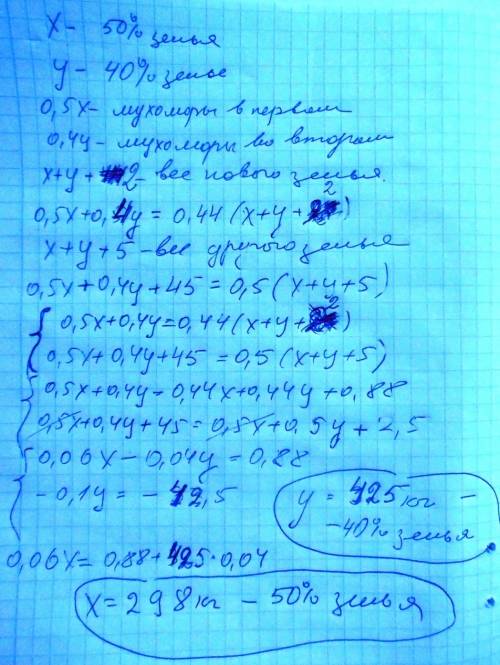 x - 50% зелья
y - 40% зелье
0,5x - мухоморы в первом
0,4y - мухоморы во втором
x+y+2 - вес нового зелья.
0,5x+0,4y = 0,44(x+y+2)
x+y+5 - вес другого зелья
0,5x+0,4y+45 = 0,5(x+y+5)
0,5x+0,4y=0,44(x+y+2)
0,5x+0,4y+45=0,5(x+y+5)
0,5x+0,4y=0,44x+0,44y+0,88
0,5x+0,4y+45=0,5x+0,5y+2,5
0,06x-0,04y=0,88
-0,1y=-42,5
y = 425 кг -
- 40% зелья
0,06x=0,88+425·0,04
x=298 кг - 50% зелья